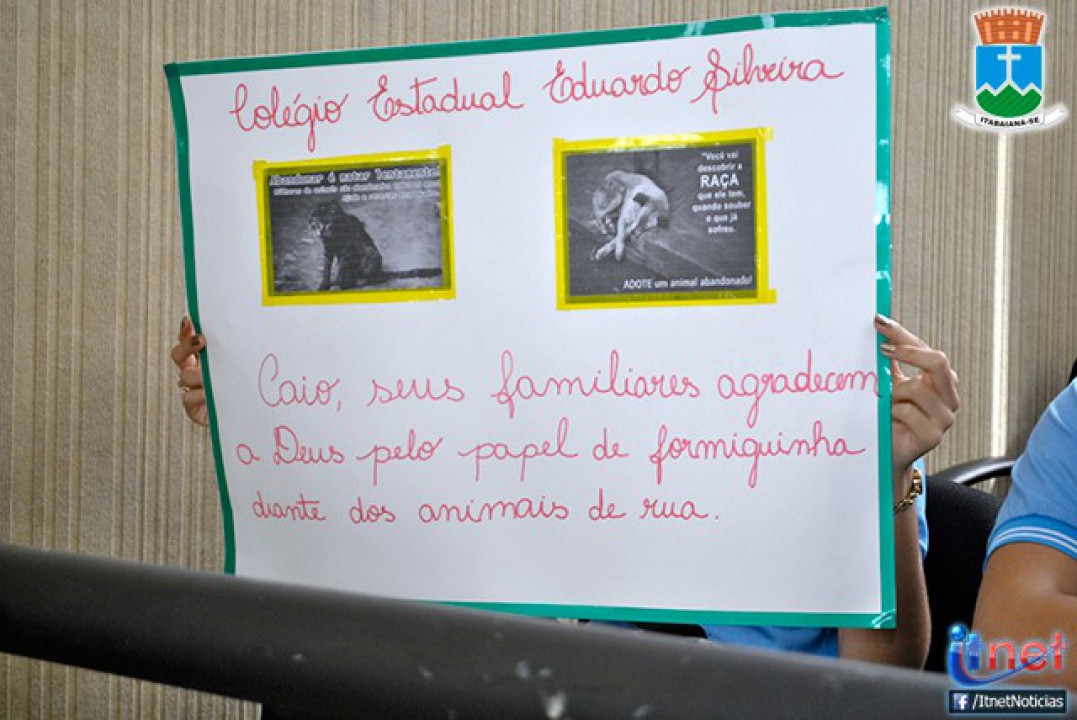 Colégio Estadual Eduardo Silveira
Abandonar é matar lentamente!
"Você vai
descobrir a
RAÇA
que ele tem,
quando souber
o que já
sofreu.
ADOTE um animal abandonado!
Caio, seus familiares agradecem
a Deus pelo papel de formiguinha
diante dos animais de rua.
ITABAIANA-SE
itnet
f /ItnetNoticias